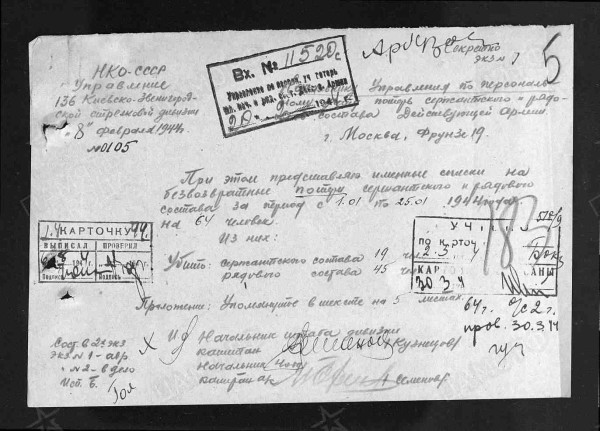 НКО-СССР
Управление
136 Киевско-Звенигород-
ской стрелковой дивизии
"8" февраля 1944г.
№0105
Вх. № 11520с
Управление по персон. уч. потерь
194 г.
Секретно
экз. № 1
5
Управления по персональн.
потерь сержантского и рядо-
состава Действующей Армии
г. Москва, Фрунзе 19.
При этом представляю именные списки на
безвозвратные потери сержантского и рядового
состава за период с 1.01 по 25.01 1944 года
на 64 человек.
Из них:
Убито: сержантского состава 19 чел
рядового состава 45 чел
Приложение: Упомянутое в тексте на 5 листах.
КАРТОЧКУ
ВЫПИСАЛ ПРОВЕРИЛ
Подпись Подпись
УЧ
по карточ.
КАР
30.3
183
64 г.
0/с 2 г.
пров. 30.3.44
И.д. Начальник штаба дивизии
капитан Кузнецов
Начальник
капитан а/с Семенов
Сост. в 2х экз
Экз № 1 - адр
" №2 - в дело
Исп. Б.